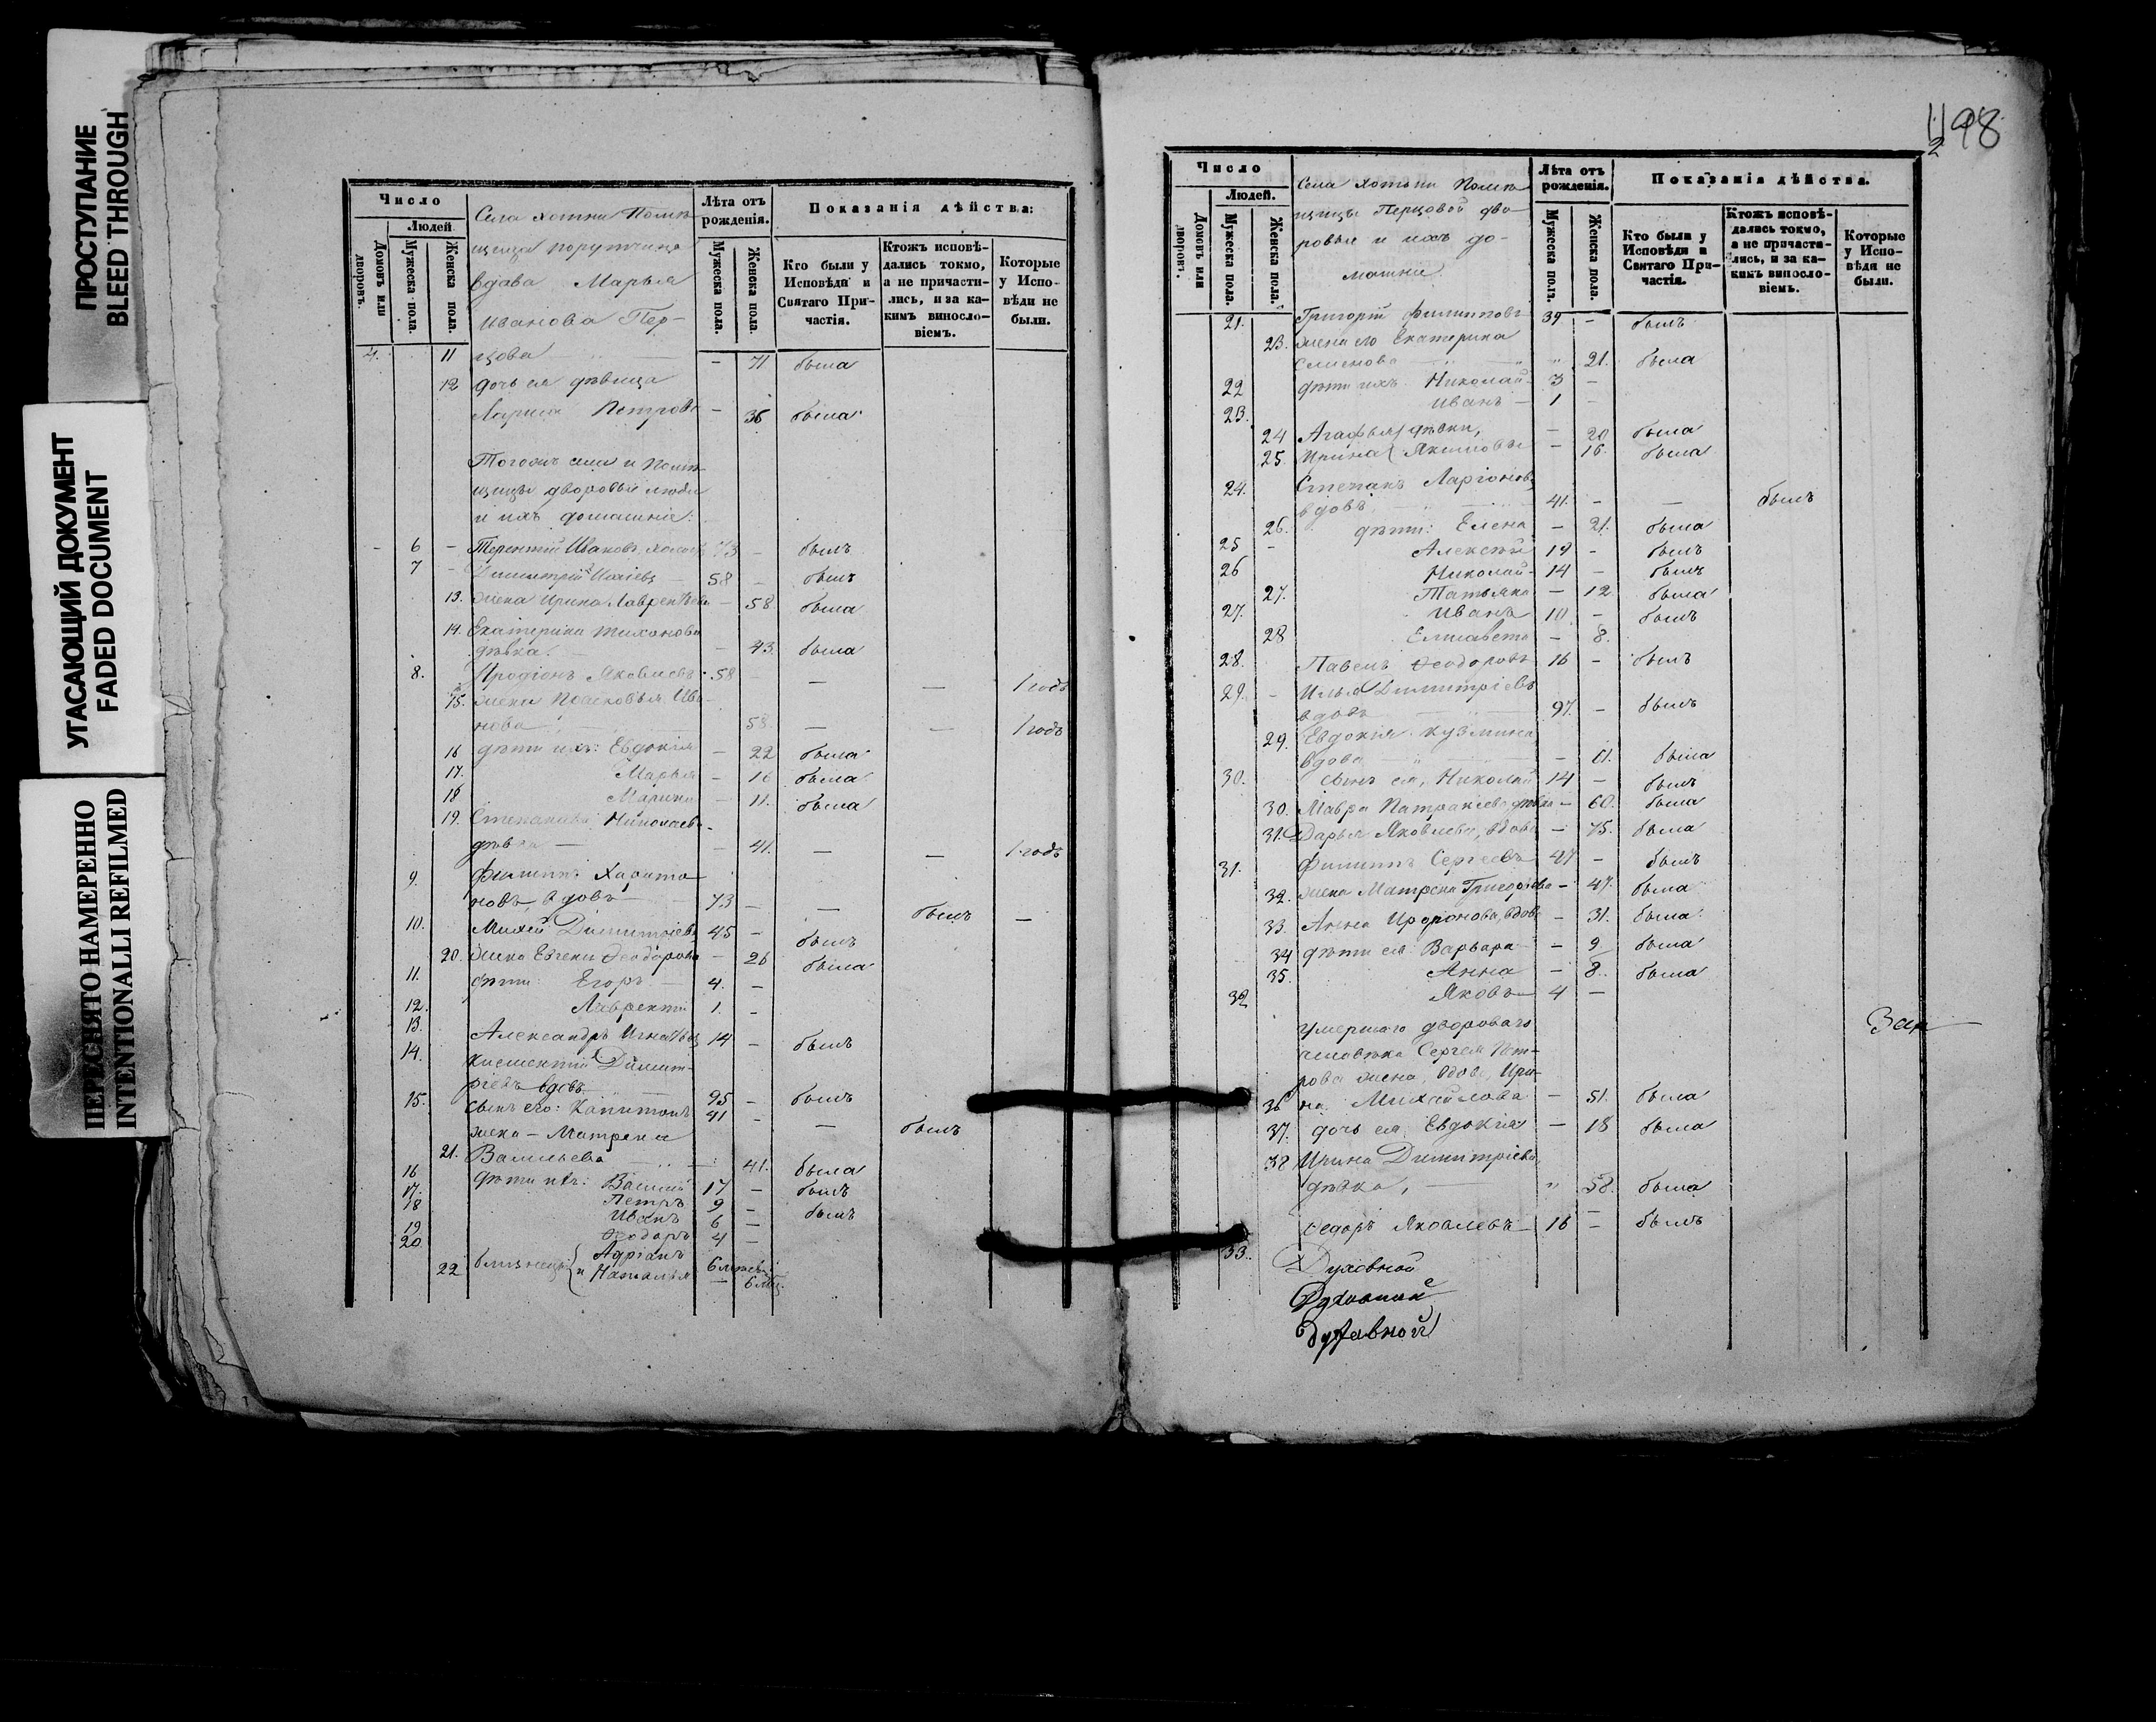 ПРОСТУПАНИЕ
BLEED THROUGH
УГАСАЮЩИЙ ДОКУМЕНТ
FADED DOCUMENT
ПЕРЕСНЯТО НАМЕРЕННО
INTENTIONALLI REFILMED
Число
Людей
Домовъ или дворовъ.
Мужеска пола.
Женска пола.
Села Хотьни Помѣ-
щица порутчица
вдова Марья
Иванова Пер-
Лѣта отъ рожденія.
Мужеска пола.
Женска пола.
Показанія дѣйства:
Кто были у Исповѣди и Святаго При-частія.
Ктожъ исповѣ-дались токмо, а не причасти-лись, и за ка-кимъ виносло-віемъ.
Которые у Испо-вѣди не были.
4. 11 цова — 71 была
12 дочь ея дѣвица
Петрова — 36 была
Тогожъ села и Помѣ-
щицы дворовые люди
и ихъ домашніе:
6 — Терентій Ивановъ 73 — былъ
7 — Димитрій 58 — былъ
13. жена Ирина Лаврентьева — 58 была
14. Екатерина Тихонова
дѣвка. — 43. была
8. Иродіонъ Яковлевъ 58 — — — 1 годъ
15. жена Ива-
нова 58 — — 1 годъ
16 дѣти ихъ: Евдокія — 22 была
17. Марья — 16 была
18 Марина — 11. была
19. Степанида Николаева
дѣвка — — 41. — — 1 годъ
9. Филиппъ Харито-
новъ, вдовъ 73 — — былъ —
10. Михей Димитріевъ 45 — былъ
20. жена Евгенія Ѳеодорова — 26 была
11. дѣти: Егоръ — 4. —
12. Лаврентій 1. —
13. Александръ Игнатьевъ 14 — былъ
14. Климентій Димит-
ріевъ вдовъ 95 — былъ
15. сынъ его: Капитонъ 41 — — былъ
жена — Матрена
21. Васильева — 41. была
16 дѣти ихъ: Василій 17 — былъ
17. Петръ 9 — былъ
18 Иванъ 6 —
19 Ѳеодоръ 4 —
20 близнецы Адріанъ 6 мѣсяц.
22 и Наталья — 6 мѣс.
1198
2
Число
Людей.
Домовъ или дворовъ.
Мужеска пола.
Женска пола.
Села Хотьни Помѣ-
щицы Перцовой дво-
ровые и ихъ до-
машніи
Лѣта отъ рожденія.
Мужеска пола.
Женска пола.
Показанія дѣйства.
Кто были у Исповѣди и Святаго При-частія.
Ктожъ исповѣ-дались токмо, а не причасти-лись, и за ка-кимъ виносло-віемъ.
Которые у Испо-вѣди не были.
21. Григорій Филипповъ 39 — былъ
23. жена его Екатерина
Семенова — 21. была
22 дѣти ихъ Николай 3 —
23. Иванъ — 1 —
24 Агафья дѣвки, — 20 была
25. Ирина Акимовы — 16. была
24. Степанъ Ларіоновъ
вдовъ 41. — — былъ
26. дѣти: Елена — 21. была
25 — Алексѣй 19 — былъ
26 Николай 14 — былъ
27. Татьяна — 12 была
27. Иванъ 10 — былъ
28 Елисавета — 8.
28. Павелъ Ѳеодоровъ 16 — былъ
29. — Илья Димитріевъ
вдовъ 97. — былъ
29. Евдокія Кузмина
вдова — 61. была
30. сынъ ея, Николай 14 — былъ
30. Мавра Патракіева дѣвка — 60. была
31. Дарья Яковлева, вдова — 75. была
31. Филиппъ Сергеевъ 47 — былъ
32. жена Матрена Григорьева — 47. была
33. Анна Иродіонова, вдова — 31. была
34 дѣти ея: Варвара — 9 была
35. Анна — 8. была
32 Яковъ — 4 —
Умершаго двороваго
человѣка Сергея Пет-
рова жена, вдова, Ири-
36 на Михайлова — 51. была
37. дочь ея, Евдокія — 18 была
38 Ирина Димитріева,
дѣвка, — 58. была
33. Ѳедоръ Яковлевъ 16 — былъ
Духовной
Духовной